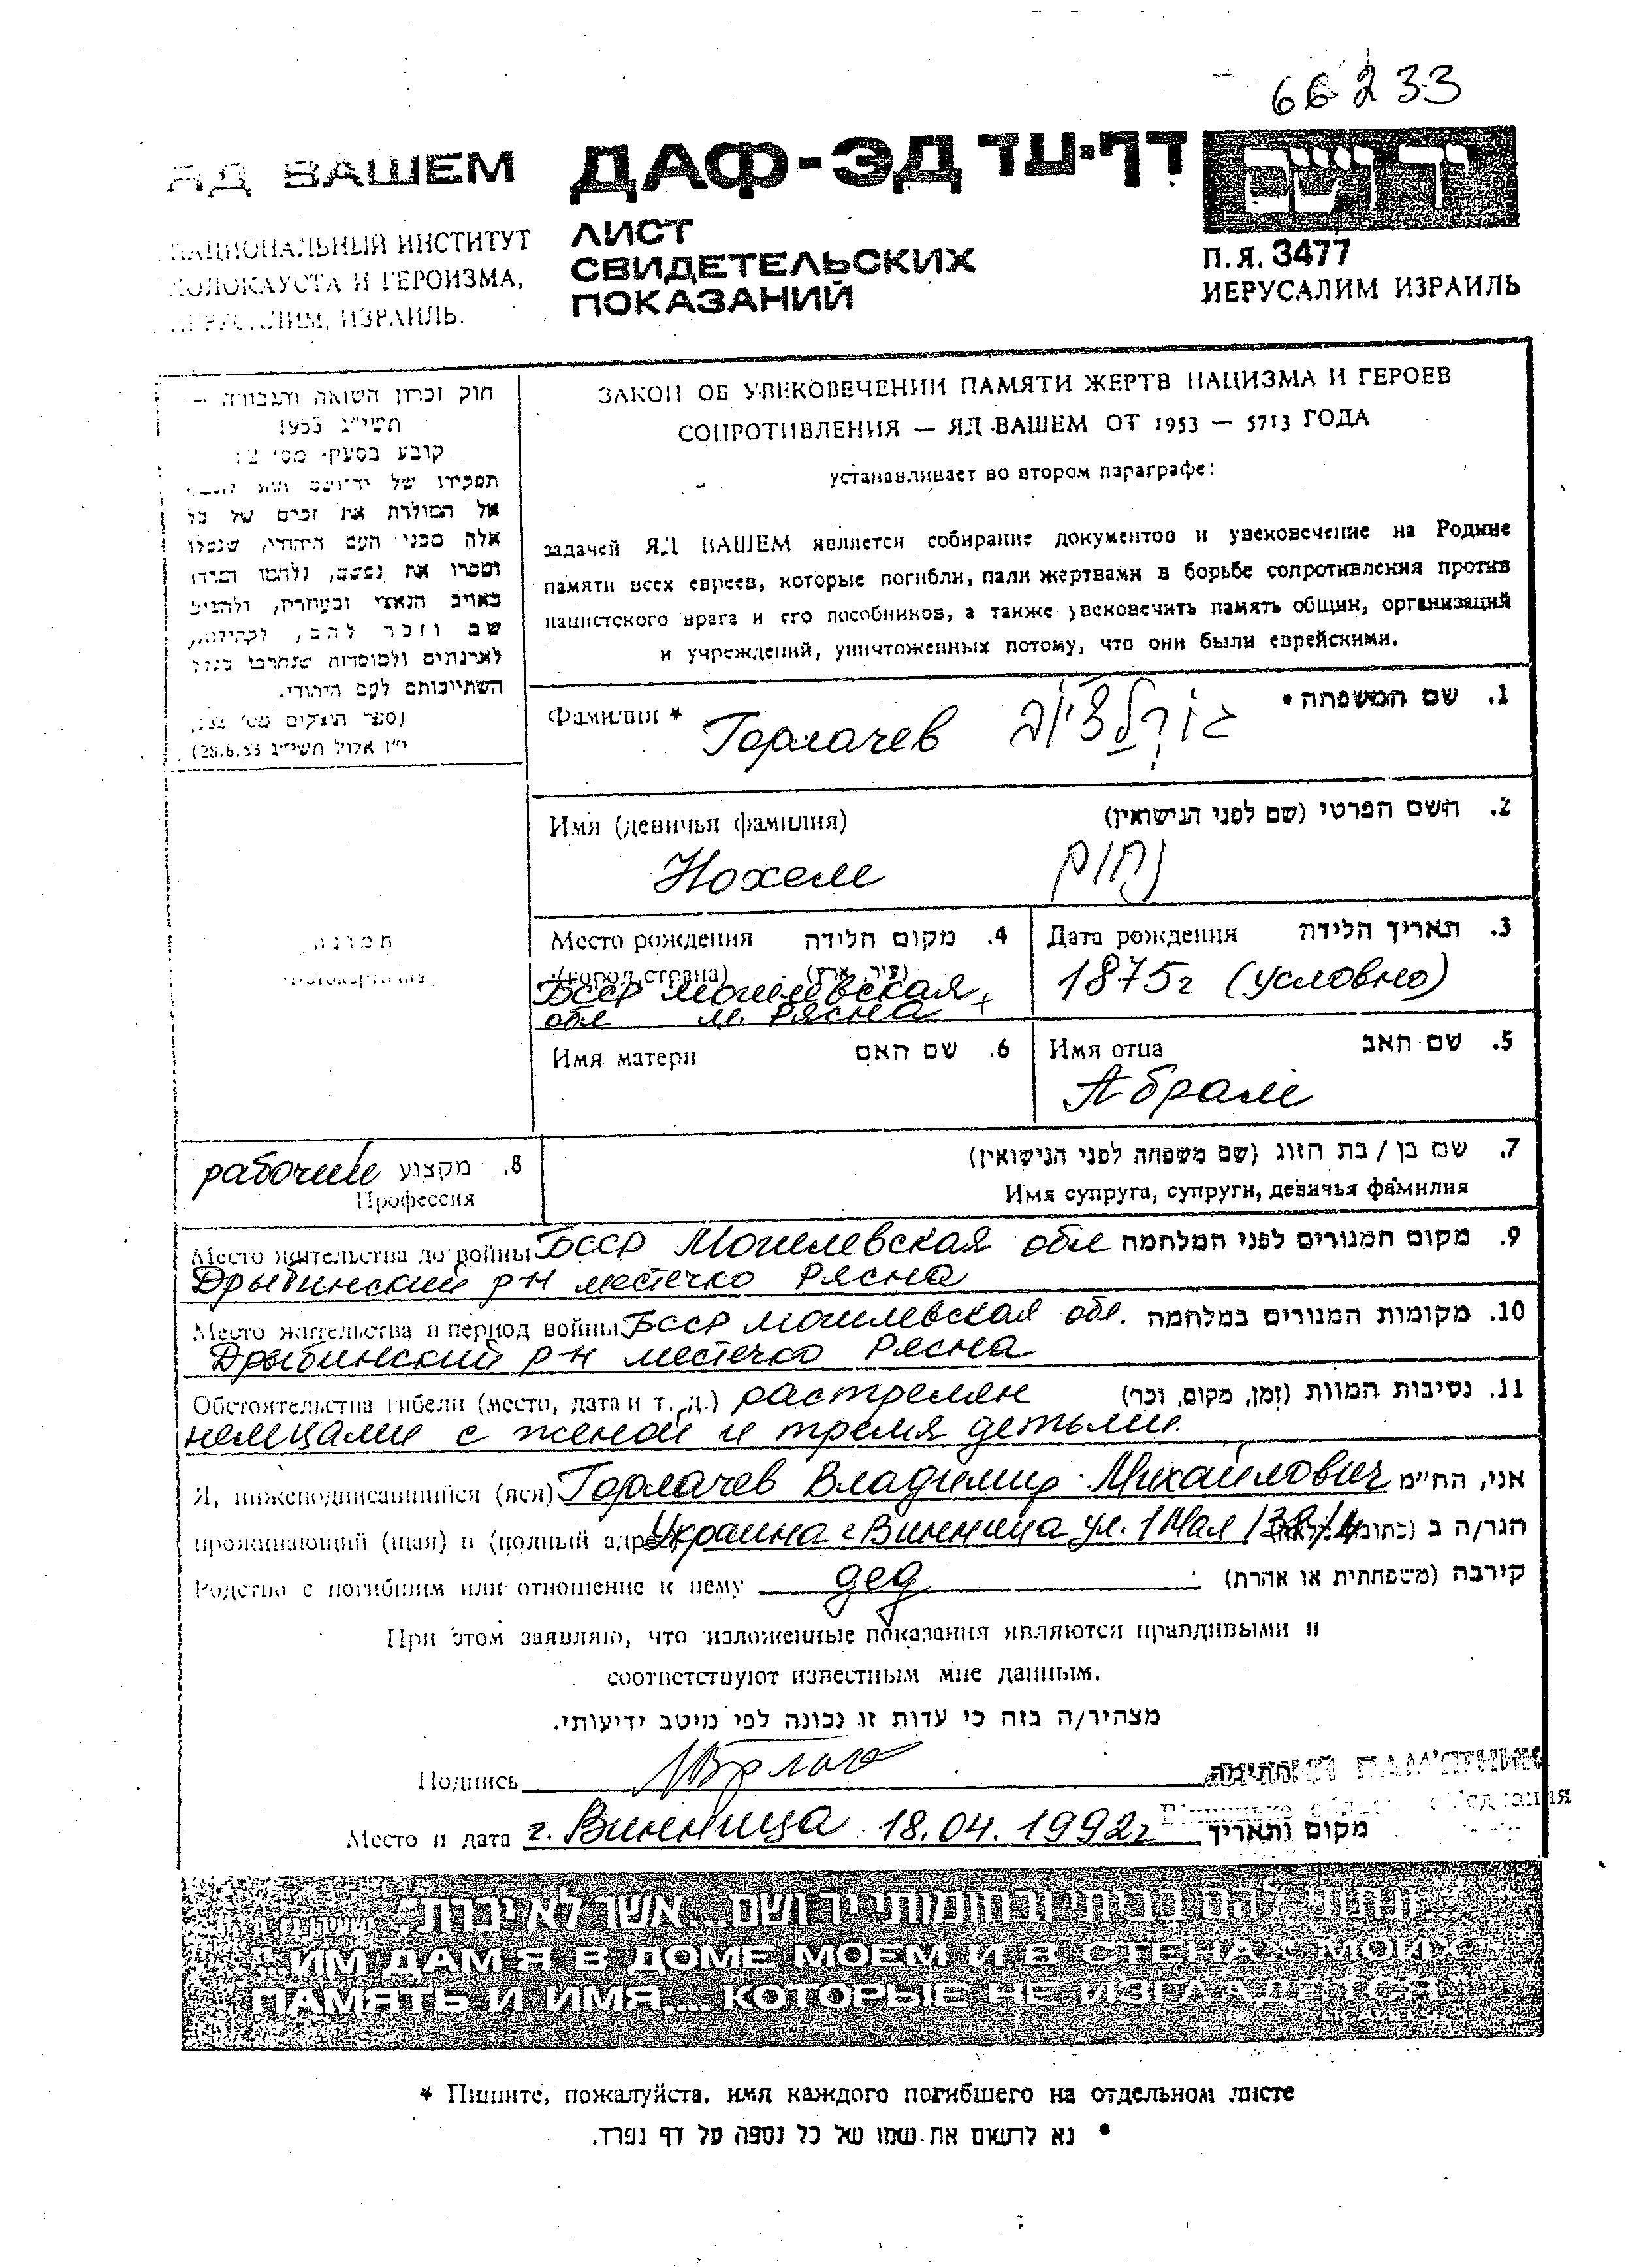 66233
ЯД ВАШЕМ
НАЦИОНАЛЬНЫЙ ИНСТИТУТ
ХОЛОКАУСТА И ГЕРОИЗМА,
ИЕРУСАЛИМ, ИЗРАИЛЬ.
ДАФ-ЭД דף-עד
ЛИСТ
СВИДЕТЕЛЬСКИХ
ПОКАЗАНИЙ
יד ושם
П.Я. 3477
ИЕРУСАЛИМ ИЗРАИЛЬ
חוק זכרון השואה והגבורה –
תשי״ג 1953
קובע בסעיף מס׳ 2:
תפקידו של יד־ושם הוא לאסוף
אל המולדת את זכרם של כל
אלה מבני העם היהודי, שנפלו
ומסרו את נפשם, נלחמו ומרדו
באויב הנאצי ובעוזריו, ולהציב
שם וזכר להם, לקהילות,
לארגונים ולמוסדות שנחרבו בגלל
השתייכותם לעם היהודי.
(ספר החוקים מס׳ 132,
י״ז אלול תשי״ג 28.8.53)
ЗАКОН ОБ УВЕКОВЕЧЕНИИ ПАМЯТИ ЖЕРТВ НАЦИЗМА И ГЕРОЕВ
СОПРОТИВЛЕНИЯ — ЯД ВАШЕМ ОТ 1953 — 5713 ГОДА
устанавливает во втором параграфе:
задачей ЯД ВАШЕМ является собирание документов и увековечение на Родине
памяти всех евреев, которые погибли, пали жертвами в борьбе сопротивления против
нацистского врага и его пособников, а также увековечить память общин, организаций
и учреждений, уничтоженных потому, что они были еврейскими.
1. שם המשפחה •
Фамилия * Горлачев גורלצ'וב
2. השם הפרטי (שם לפני הנישואין)
Имя (девичья фамилия)
Нохем נחום
תמונה
3. תאריך הלידה Дата рождения
1875г (условно)
4. מקום הלידה Место рождения
(עיר, ארץ) (город, страна)
БССР Могилевская
обл м. Рясна
5. שם האב Имя отца
Абрам
6. שם האם Имя матери
7. שם בן / בת הזוג (שם משפחה לפני הנישואין)
Имя супруга, супруги, девичья фамилия
8. מקצוע рабочий
Профессия
9. מקום המגורים לפני המלחמה
Место жительства до войны БССР Могилевская обл
Дрыбинский р-н местечко Рясна
10. מקומות המגורים במלחמה
Место жительства в период войны БССР Могилевская обл.
Дрыбинский р-н местечко Рясна
11. נסיבות המוות (זמן, מקום, וכו׳)
Обстоятельства гибели (место, дата и т. д.) растрелян
немцами с женой и тремя детьми.
Я, нижеподписавшийся (аяся) Горлачев Владимир Михайлович אני, הח״מ
проживающий (щая) в (полный адрес) Украина г Винница ул. 1 Мая הגר/ה ב
Родство с погибшим или отношение к нему дед קירבה (משפחתית או אחרת)
При этом заявляю, что изложенные показания являются правдивыми и
соответствуют известным мне данным.
מצהיר/ה בזה כי עדות זו נכונה לפי מיטב ידיעותי.
Подпись חתימה ПАМ'ЯТНИК
Место и дата г. Винница 18.04.1992г מקום ותאריך
״...ונתתי להם בביתי ובחומותי יד ושם... אשר לא יכרת״
"...ИМ ДАМ Я В ДОМЕ МОЕМ И В СТЕНАХ МОИХ
ПАМЯТЬ И ИМЯ.... КОТОРЫЕ НЕ ИЗГЛАДЯТСЯ"
* Пишите, пожалуйста, имя каждого погибшего на отдельном листе
• נא לרשום את שמו של כל נספה על דף נפרד.